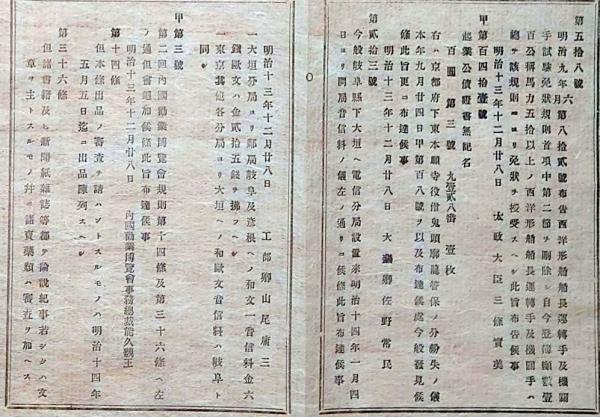 第五拾八號
明治九年六月第八拾貳號布告西洋形船船長運轉手及機關
手試驗免狀規則首項中第二節ヲ刪除シ自今登簿噸數壹
百公稱馬力五拾以上ノ西洋形船船長運轉手及機關手ハ
總テ該規則ニヨリ免狀ヲ授受スヘシ此旨布告候事
明治十三年十二月廿八日　太政大臣三條實美
甲第百四拾壹號
起業公債證書無記名
百圓　第三號　九壹貳八番　壹枚
右ハ京都府下東本願寺役僧鬼頭廓龍管保ノ分紛失ノ儀
本年九月廿四日甲第百八號ヲ以及布達候處今般發見候
條此旨更ニ布達候事
明治十三年十二月廿八日　大藏卿佐野常民
第貳拾三號
今般岐阜縣下大垣ヘ電信分局設置來明治十四年一月四
日ヨリ開局音信料ノ儀左ノ通リ候條此旨布達候事
明治十三年十二月廿八日　工部卿山尾庸三
一大垣分局ヨリ鄰局岐阜及彦根ヘノ和文一音信料金六
錢歐文ハ金貳拾五錢ヲ拂フヘシ
一東京其他各分局ヨリ大垣ヘノ和歐文音信料ハ岐阜ト
同シ
甲第三號
第二回內國勸業博覽會規則第十四條及第三十六條ヘ左
ノ通但書追加候條此旨布達候事
明治十三年十二月廿八日　內國勸業博覽會事務總裁能久親王
第十四條
但本條出品ノ審査ヲ請ハントスルモノハ明治十四年
五月五日迄ニ出品陳列スヘシ
第三十六條
但諸書籍及ヒ新聞紙雜誌等都テ論說紀事若シクハ文
章ヲ主トスルモノ幷ニ諸賣藥類ハ審査ヲ加ヘス